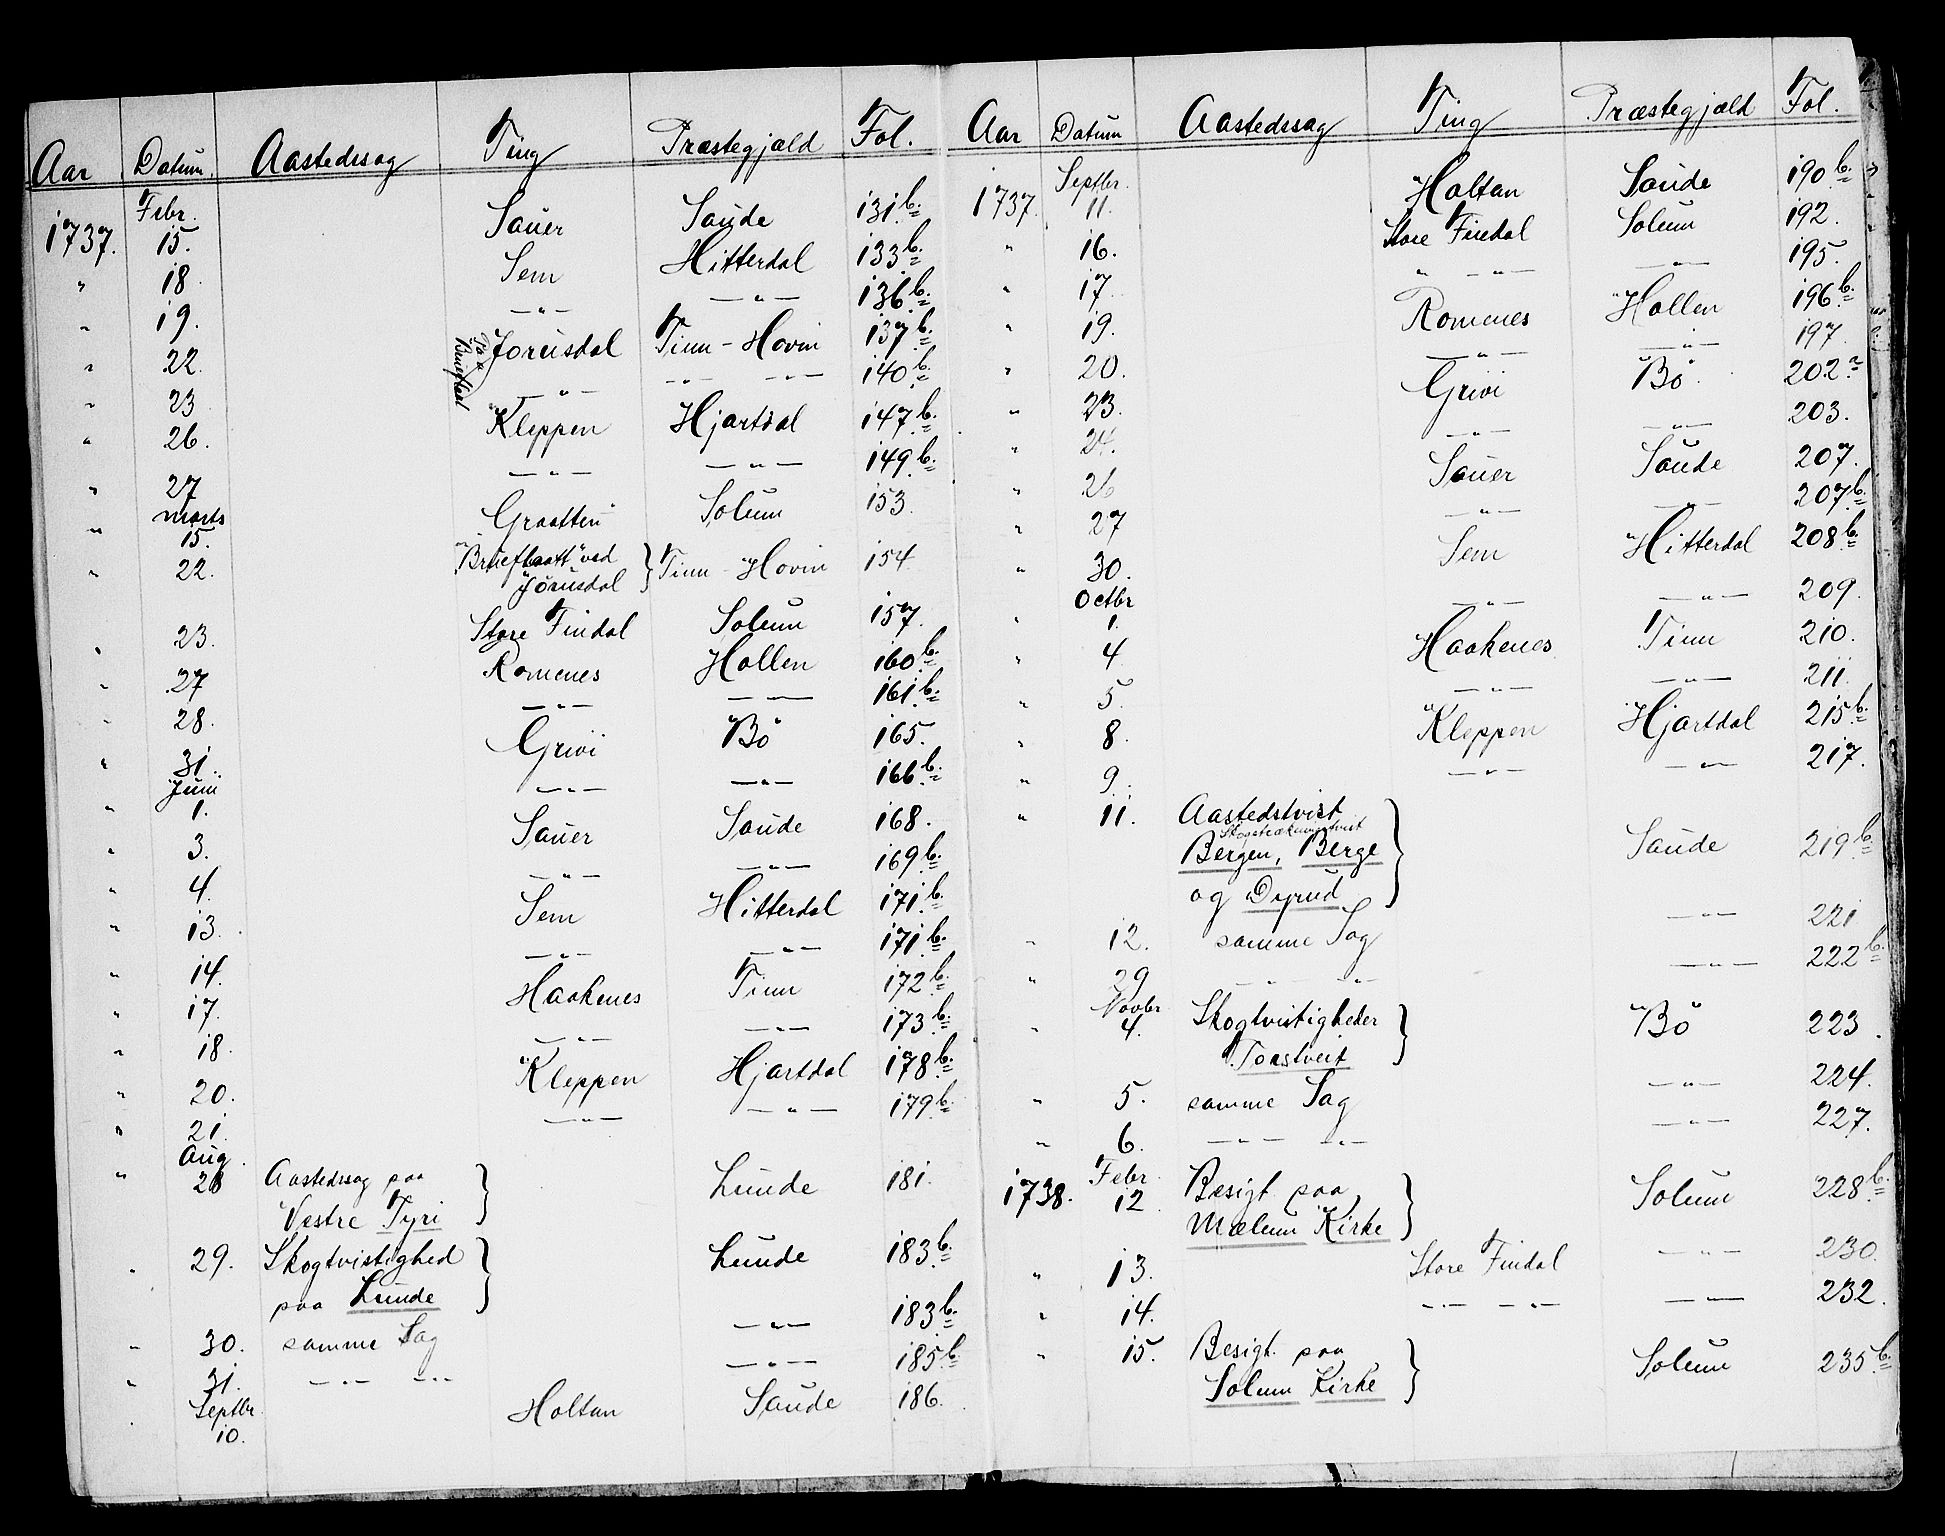 Aar Datum Aastedssag Ting Præstegjæld Fol.
1737. Febr. 15. Sauer Saude 131 b.
" 18 Sem Hitterdal 133 b.
" 19. — " — — " — 136 b.
" 22. Jorusdal Tinn - Hovin 137 b.
" 23 — " — — " — — " — 140 b.
" 26. Kleppen Hjartdal 147 b.
" 27 — " — — " — 149 b.
" Marts 15. Graatten Solum 153.
" 22. Bruflaatt ved Jorusdal } Tinn - Hovin 154
" 23. Store Findal Solum 157.
" 27 Romenes Hollen 160 b.
" 28. — " — — " — 161 b.
" 31 Grivi Bö 165.
" Juni 1. — " — — " — 166 b.
" 3. Sauer Saude 168.
" 4. — " — — " — 169 b.
" 13. Sem Hitterdal 171 b.
" 14. — " — — " — 171 b.
" 17. Haakenes Tinn 172 b.
" 18. — " — — " — 173 b.
" 20. Kleppen Hjartdal 178 b.
" 21. — " — — " — 179 b.
" Aug. 28 Aastedssag paa Vestre Tyri } Lunde 181.
" 29. Skogtvistighed paa Lunde } Lunde 183 b.
" 30. samme Sag — " — 183 b.
" 31. — " — — " — — " — 185 b.
" Septbr. 10. Holtan Saude 186.
Aar Datum Aastedssag Ting Præstegjæld Fol.
1737. Septbr. 11. Holtan Saude 190 b.
" 16. Store Findal Solum 192.
" 17 " — " — — " — 195.
" 19. Romenes Hollen 196 b.
" 20. — " — — " — 197
" 23. Grivi Bö 202
" 24. — " — — " — 203.
" 26 Sauer Saude 207.
" 27 — " — — " — 207 b.
" 30. Sem Hitterdal 208 b.
" Octbr 1. — " — — " — 209.
" 4 Haakenes Tinn 210.
" 5. — " — — " — 211.
" 8. Kleppen Hjartdal 215 b.
" 9. — " — — " — 217.
" 11. Aastedstvist
Bergen, Berge
og Dyrud } Saude 219 b
" 12. samme Sag — " — 221
" 29 — " — — " — — " — 222 b.
" Novbr 4. Skogtvistigheder
Torstveit } Bö 223.
" 5. samme Sag — " — 224.
" 6. — " — — " — — " — 227.
1738. Febr. 12 Besigt paa
Mælum Kirke } Solum 228 b.
" 13. Store Findal — " — 230.
" 14. — " — — " — — " — 232.
" 15. Besigt. paa
Solum Kirke } Solum 235 b.